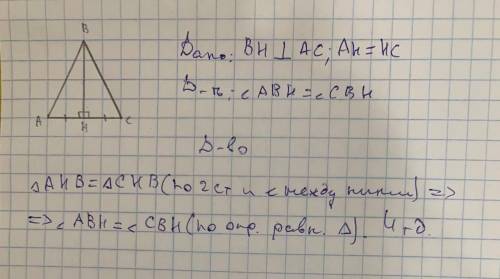 B
A H C
Дано: BH ⊥ AC; AH = HC
Д-ть: ∠ABH = ∠CBH
Д-во
△AHB = △CHB (по 2 ст и ∠ между ними) =>
=> ∠ABH = ∠CBH (по опр. равн. △). Ч т д.